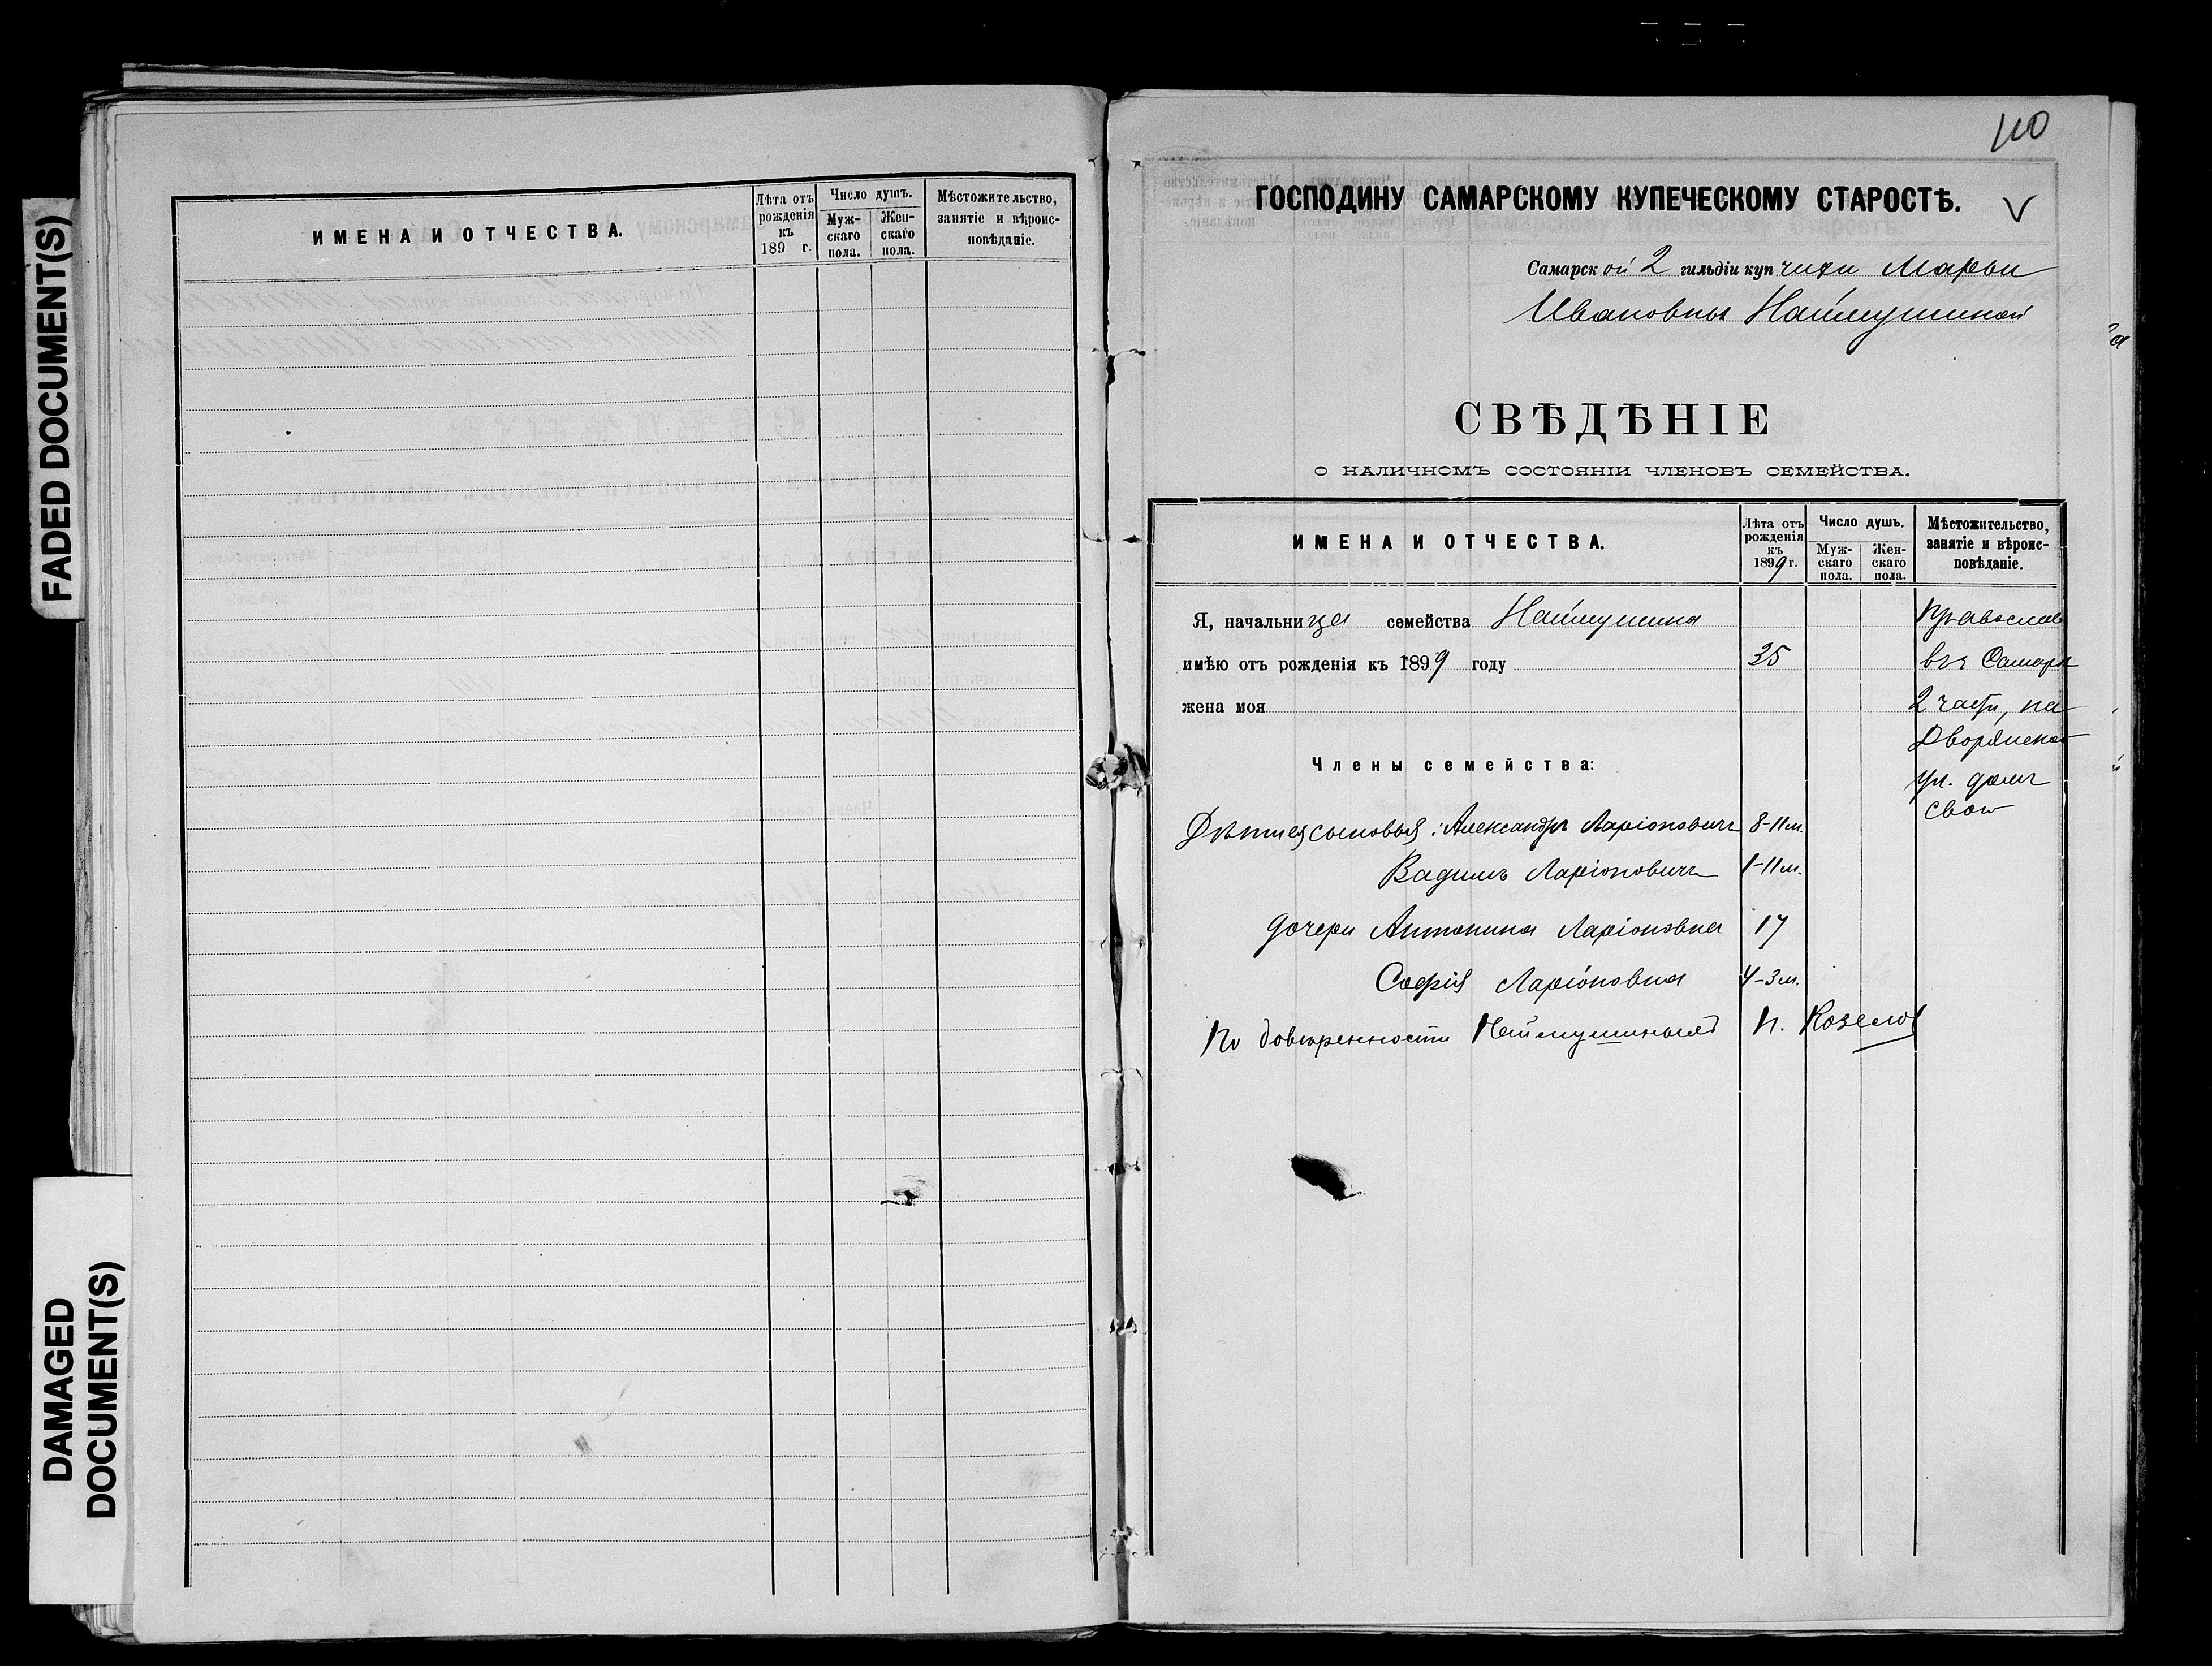 FADED DOCUMENT(S)
DAMAGED
DOCUMENT(S)
ИМЕНА И ОТЧЕСТВА.
Лѣта отъ
рожденія
къ
189 г.
Число душъ.
Муж-
скаго
пола.
Жен-
скаго
пола.
Мѣстожительство,
занятіе и вѣроис-
повѣданіе.
110
ГОСПОДИНУ САМАРСКОМУ КУПЕЧЕСКОМУ СТАРОСТѢ.
Самарской 2 гильдіи купчихи Марьи
Ивановны Наймушиной
СВѢДѢНІЕ
О НАЛИЧНОМЪ СОСТОЯНІИ ЧЛЕНОВЪ СЕМЕЙСТВА.
ИМЕНА И ОТЧЕСТВА.
Лѣта отъ
рожденія
къ
1899 г.
Число душъ.
Муж-
скаго
пола.
Жен-
скаго
пола.
Мѣстожительство,
занятіе и вѣроис-
повѣданіе.
Я, начальница семейства Наймушина Православ
имѣю отъ рожденія къ 1899 году 35 въ Самарѣ
жена моя 2 части, на
Дворянской
Члены семейства:
ул. домъ
свой
сыновья: Александръ Ларіоновичъ 8-11 м.
Вадимъ Ларіоновичъ 1-11 м.
дочери Антонина Ларіоновна 17
Софія Ларіоновна 4-3 м.
По довѣренности Наймушиной П. Козелов